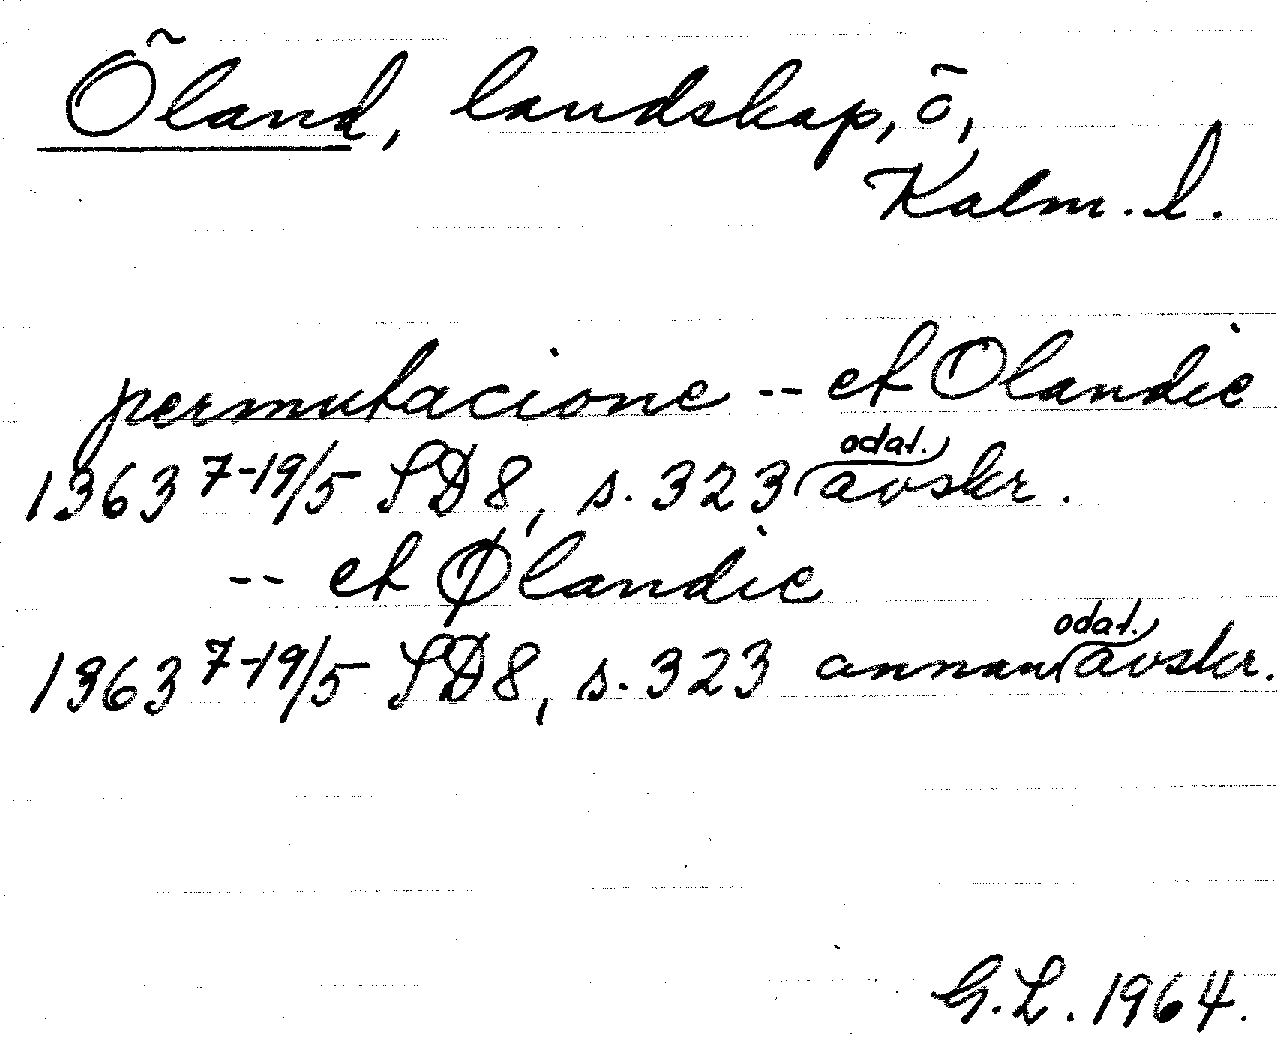 Öland, landskap, ö,
Kalm. l.
permutacione -- et Olandie
1363 7-19/5 SD 8, s. 323 (odat.) avskr.
-- et Ølandie
1363 7-19/5 SD 8, s. 323 annan (odat.) avskr.
G.L. 1964.